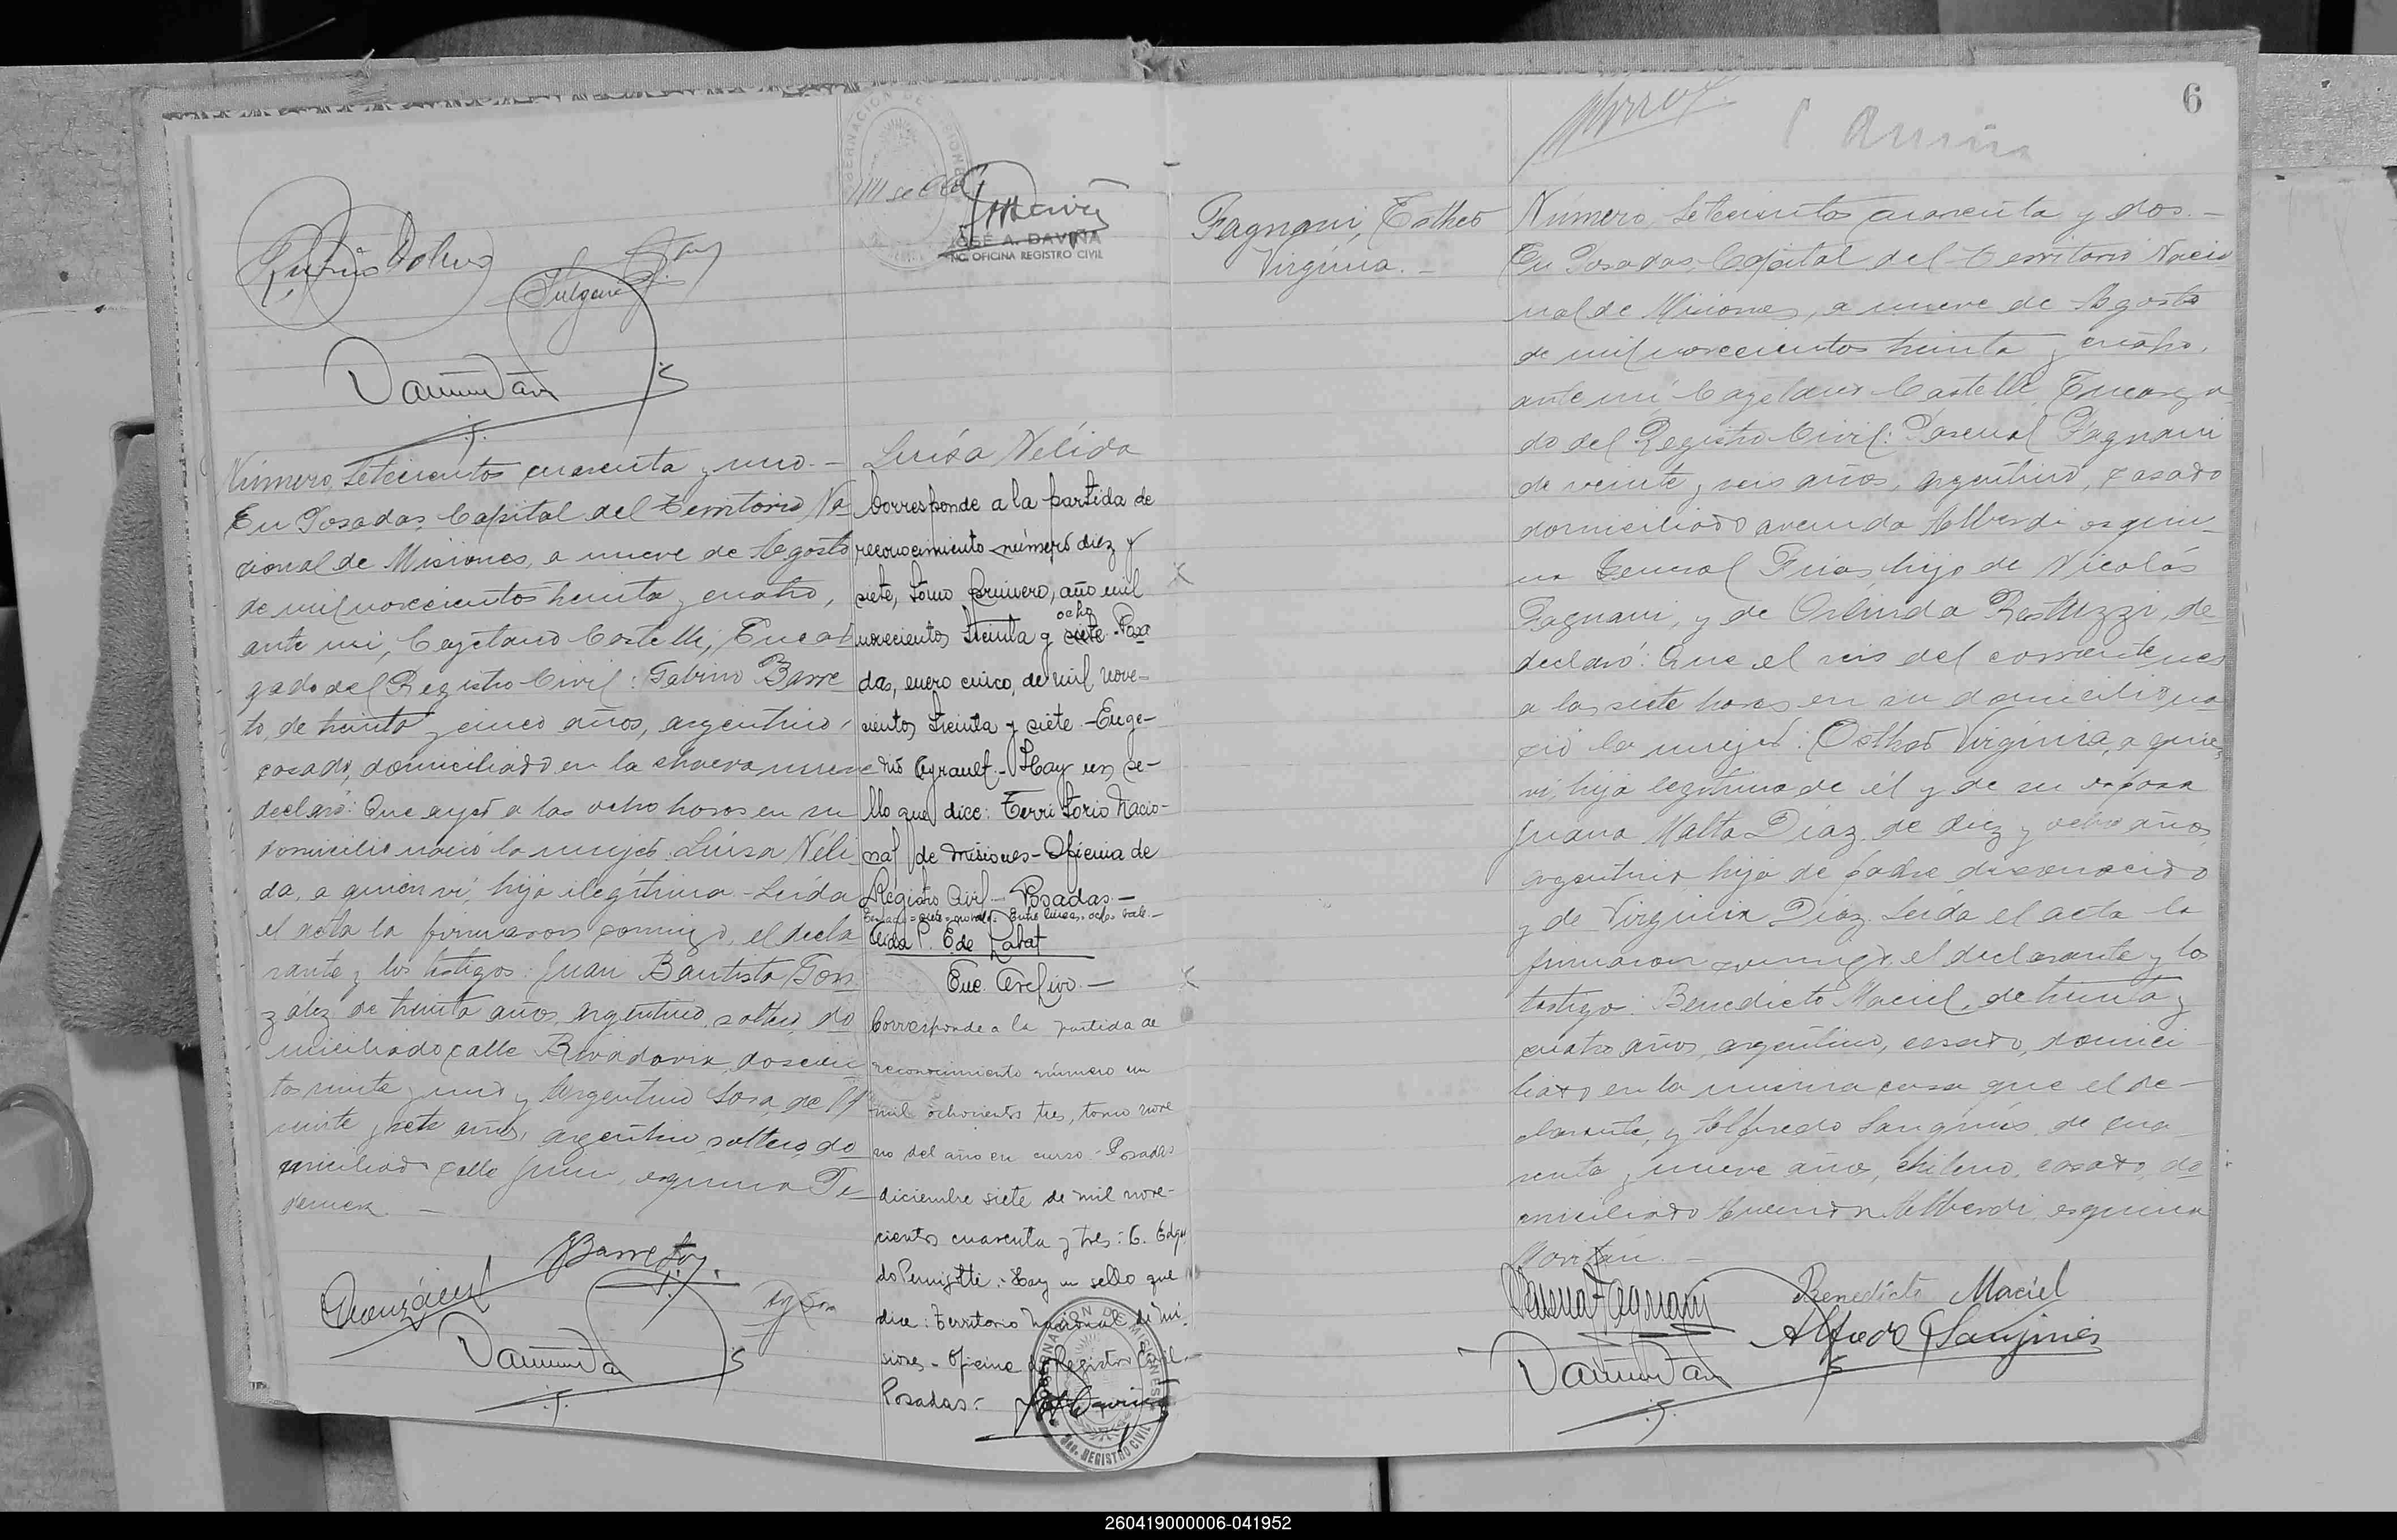 JOSÉ A. DAVIÑA
ENC. OFICINA REGISTRO CIVIL
Número, Setecientos cuarenta y uno.—
En Posadas, Capital del Territorio Na
cional de Misiones, a nueve de Agosto
de mil novecientos treinta y cuatro,
ante mi, Cayetano Castelli, Encar
gado del Registro Civil: Gabino Barre
to, de treinta y cinco años, argentino,
casado, domiciliado en la chacra nueve
declaró: Que ayer a las ocho horas en su
domicilio nació la mujer: Luisa Néli
da, a quien vi, hija ilegítima. Leída
el acta la firmaron conmigo, el decla
rante y los testigos: Juan Bautista Gon
zález, de treinta años, argentino, soltero, do
miciliado calle Rivadavia, doscien
tos veinte y uno y Argentino Sosa, de
veinte y siete años, argentino, soltero, do
miciliado calle Junin, esquina
Barreto
González
Luisa Nélida
Corresponde a la partida de
reconocimiento número diez y
siete, tomo primero, año mil
ocho
novecientos treinta y siete.- Posa
das, enero cinco, de mil nove-
cientos treinta y siete.-Euge-
nio Ayrault.- Hay un se-
llo que dice: Territorio Nacio-
nal de Misiones-Oficina de
Registro Civil.- Posadas.-
Enc. Archivo.—
Corresponde a la partida de
reconocimiento número un
mil ochocientos tres, tomo nove
no del año en curso.- Posadas
diciembre siete de mil nove-
cientos cuarenta y tres: C. Edga
do
Hay un sello que
dice: Territorio Nacional de Mi-
siones.- Oficina de Registro Civil.-
Posadas.-
GOBERNACION DE MISIONES
REGISTRO CIVIL
6
Fagnani, Esther
Virginia.—
Número, Setecientos cuarenta y dos.—
En Posadas, Capital del Territorio Nacio
nal de Misiones, a nueve de Agosto
de mil novecientos treinta y cuatro,
ante mi Cayetano Castelli, Encarga
do del Registro Civil: Pascual Fagnani
de veinte y seis años, argentino, casado
domiciliado avenida Alberdi esqui-
na General Frias, hijo de Nicolás
Fagnani, y de Orlinda Rastuzzi, de
declaró: Que el seis del corriente mes
a las siete horas en su domicilio, na
ció la mujer: Esther Virginia, a quien
vi, hija legítima de él y de su esposa
Juana Malta Díaz, de diez y ocho años,
argentina, hija de padre desconocido
y de Virginia Díaz. Leída el acta la
firmaron conmigo, el declarante y los
testigos: Benedicto Maciel, de treinta y
cuatro años, argentino, casado, domici-
liado en la misma casa que el de-
clarante, y Alfredo Sanginés, de cua-
renta y nueve años, chileno, casado, do
miciliado Avenida Alberdi, esquina
Pascual Fagnani
Benedicto Maciel
Alfredo Sanjinés
260419000006-041952